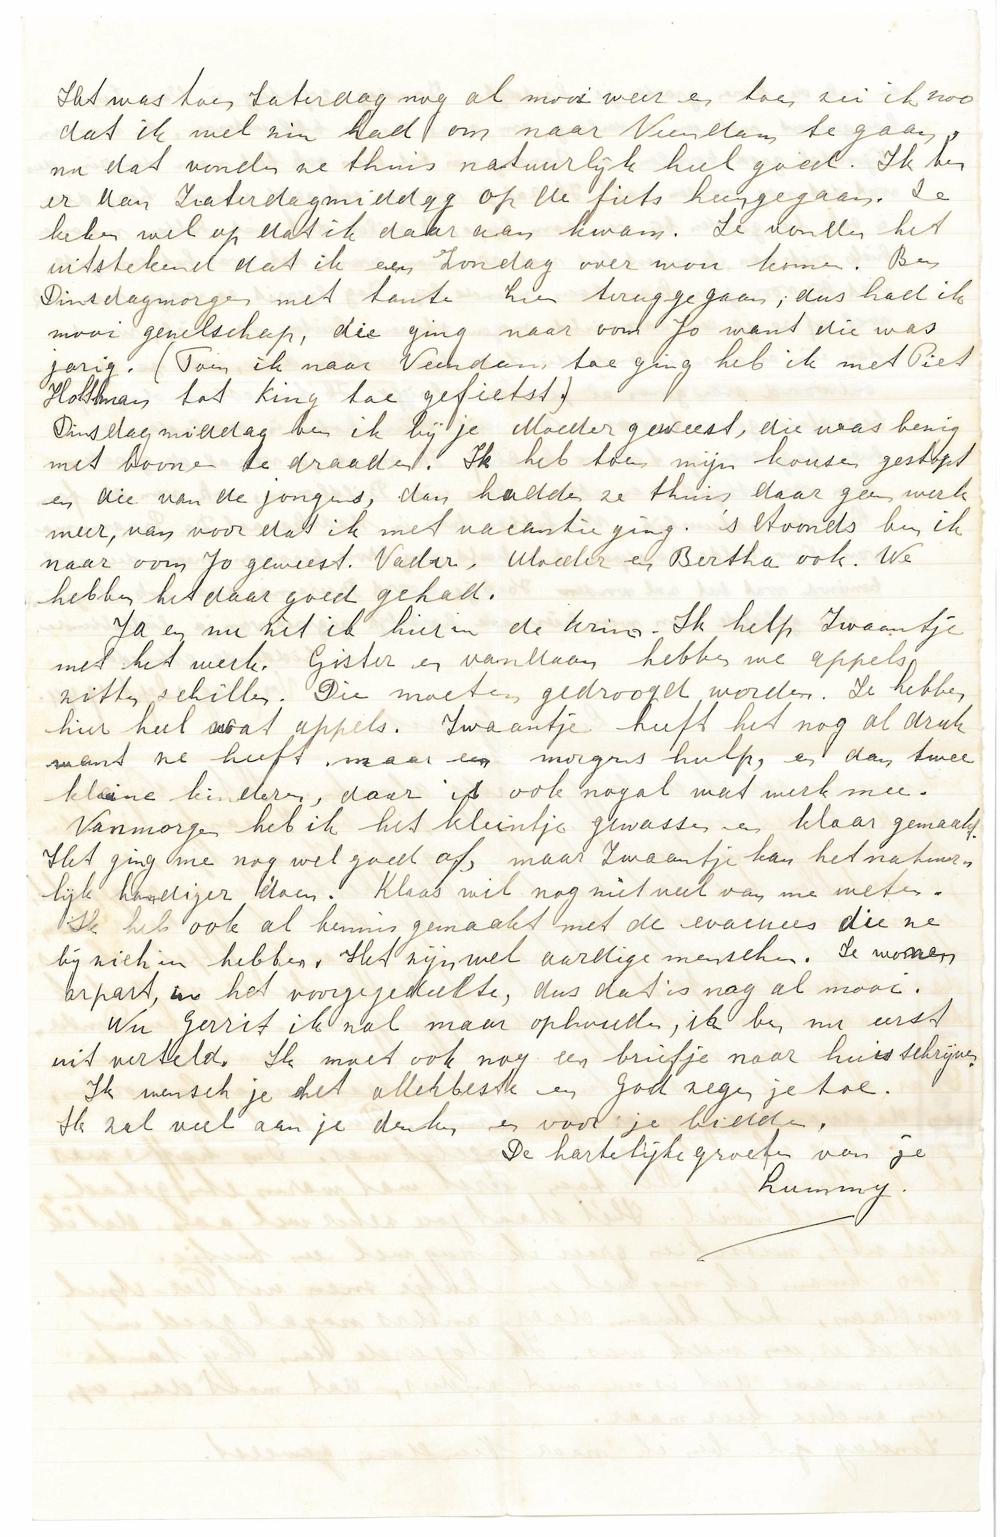 Het was toen Zaterdag nog al mooi weer en toen zei ik zoo
dat ik wel zin had om naar Veendam te gaan,
nu dat vonden ze thuis natuurlijk heel goed. Ik ben
er dan Zaterdagmiddag op de fiets heengegaan. Ze
keken wel op dat ik daar aan kwam. Ze vonden het
uitstekend dat ik een Zondag over wou komen. Ben
Dinsdagmorgen met tante hier teruggegaan, dus had ik
mooi gezelschap, die ging naar oom Jo want die was
jarig. (Toen ik naar Veendam toe ging heb ik met Piet
Holtman tot King toe gefietst)
Dinsdagmiddag ben ik bij je Moeder geweest, die was bezig
met boonen te draaden. Ik heb toen mijn kousen gestopt
en die van de jongens, dan hadden ze thuis daar geen werk
meer, van voor dat ik met vacantie ging. 's Avonds ben ik
naar oom Jo geweest. Vader, Moeder en Bertha ook. We
hebben het daar goed gehad.
Ja en nu zit ik hier in de Krim. Ik help Zwaantje
met het werk. Gister en vandaag hebben we appels
zitten schillen. Die moeten gedroogd worden. Ze hebben
hier heel wat appels. Zwaantje heeft het nog al druk
want ze heeft maar een morgens hulp, en dan twee
kleine kinderen, daar is ook nogal wat werk mee.
Vanmorgen heb ik het kleintje gewasschen en klaar gemaakt.
Het ging me nog wel goed af, maar Zwaantje kan het natuur-
lijk handiger doen. Klaas wil nog niet veel van me weten.
Ik heb ook al kennis gemaakt met de evacuees die ze
bij zich in hebben. Het zijn wel aardige menschen. Ze wonen
apart, in het voorgedeelte, dus dat is nog al mooi.
Nu Gerrit ik zal maar ophouden, ik ben nu eerst
uit verteld. Ik moet ook nog een briefje naar huis schrijven.
Ik wensch je het allerbeste en God zegen je toe.
Ik zal veel aan je denken en voor je bidden.
De hartelijke groeten van je
Lummy.